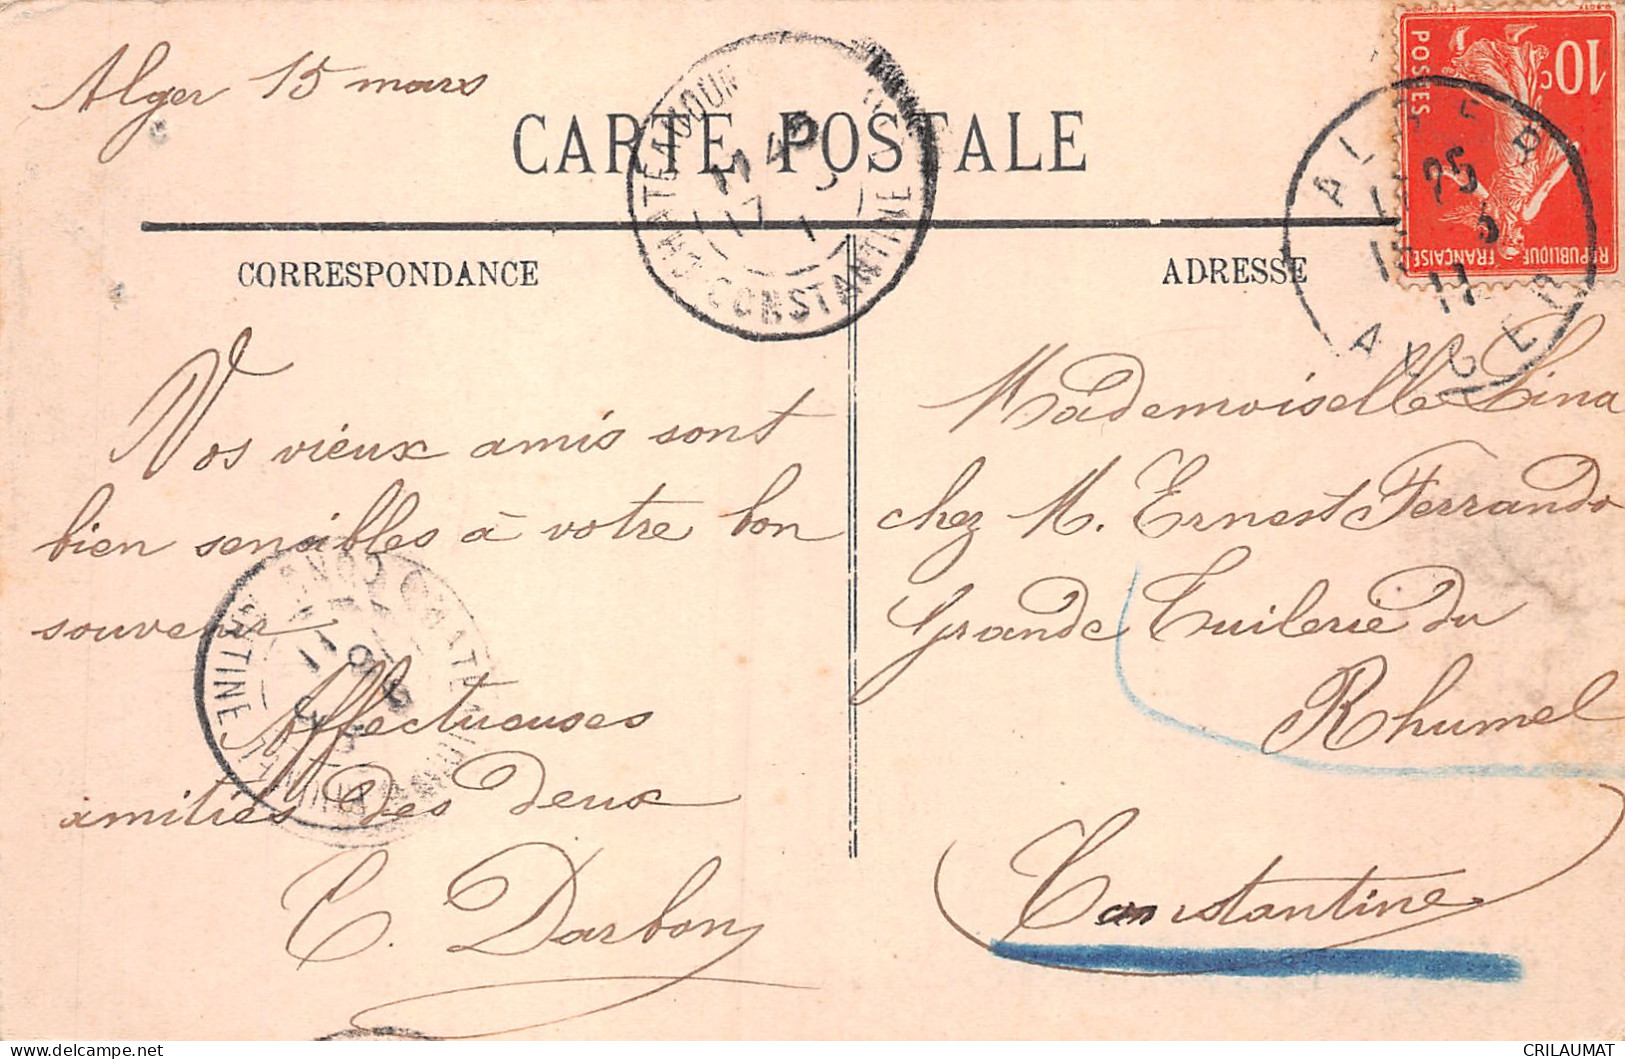 Alger 15 mars
CARTE POSTALE
CORRESPONDANCE
ADRESSE
Vos vieux amis sont
bien sensibles à votre bon
souvenir
Affectueuses
amitiés des deux
C. Darbon
Mademoiselle Lina
chez M. Ernest Ferrando
Grande Tuilerie du
Rhumel
Constantine
10c
POSTES
REPUBLIQUE
FRANÇAISE
ALGER
15 3
11
ALGER
CONSTANTINE
11 45
17
CRILAUMAT